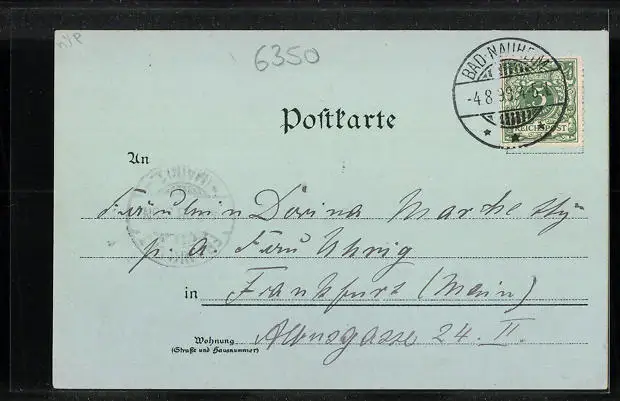 6350
BAD-NAUHEIM
-4 8 98
5
REICHSPOST
Postkarte
An
Fräulein Dorina
p. a. Frau Uhrig
in Frankfurt (Main)
Wohnung
(Straße und Hausnummer)
Albusgasse 24. II.